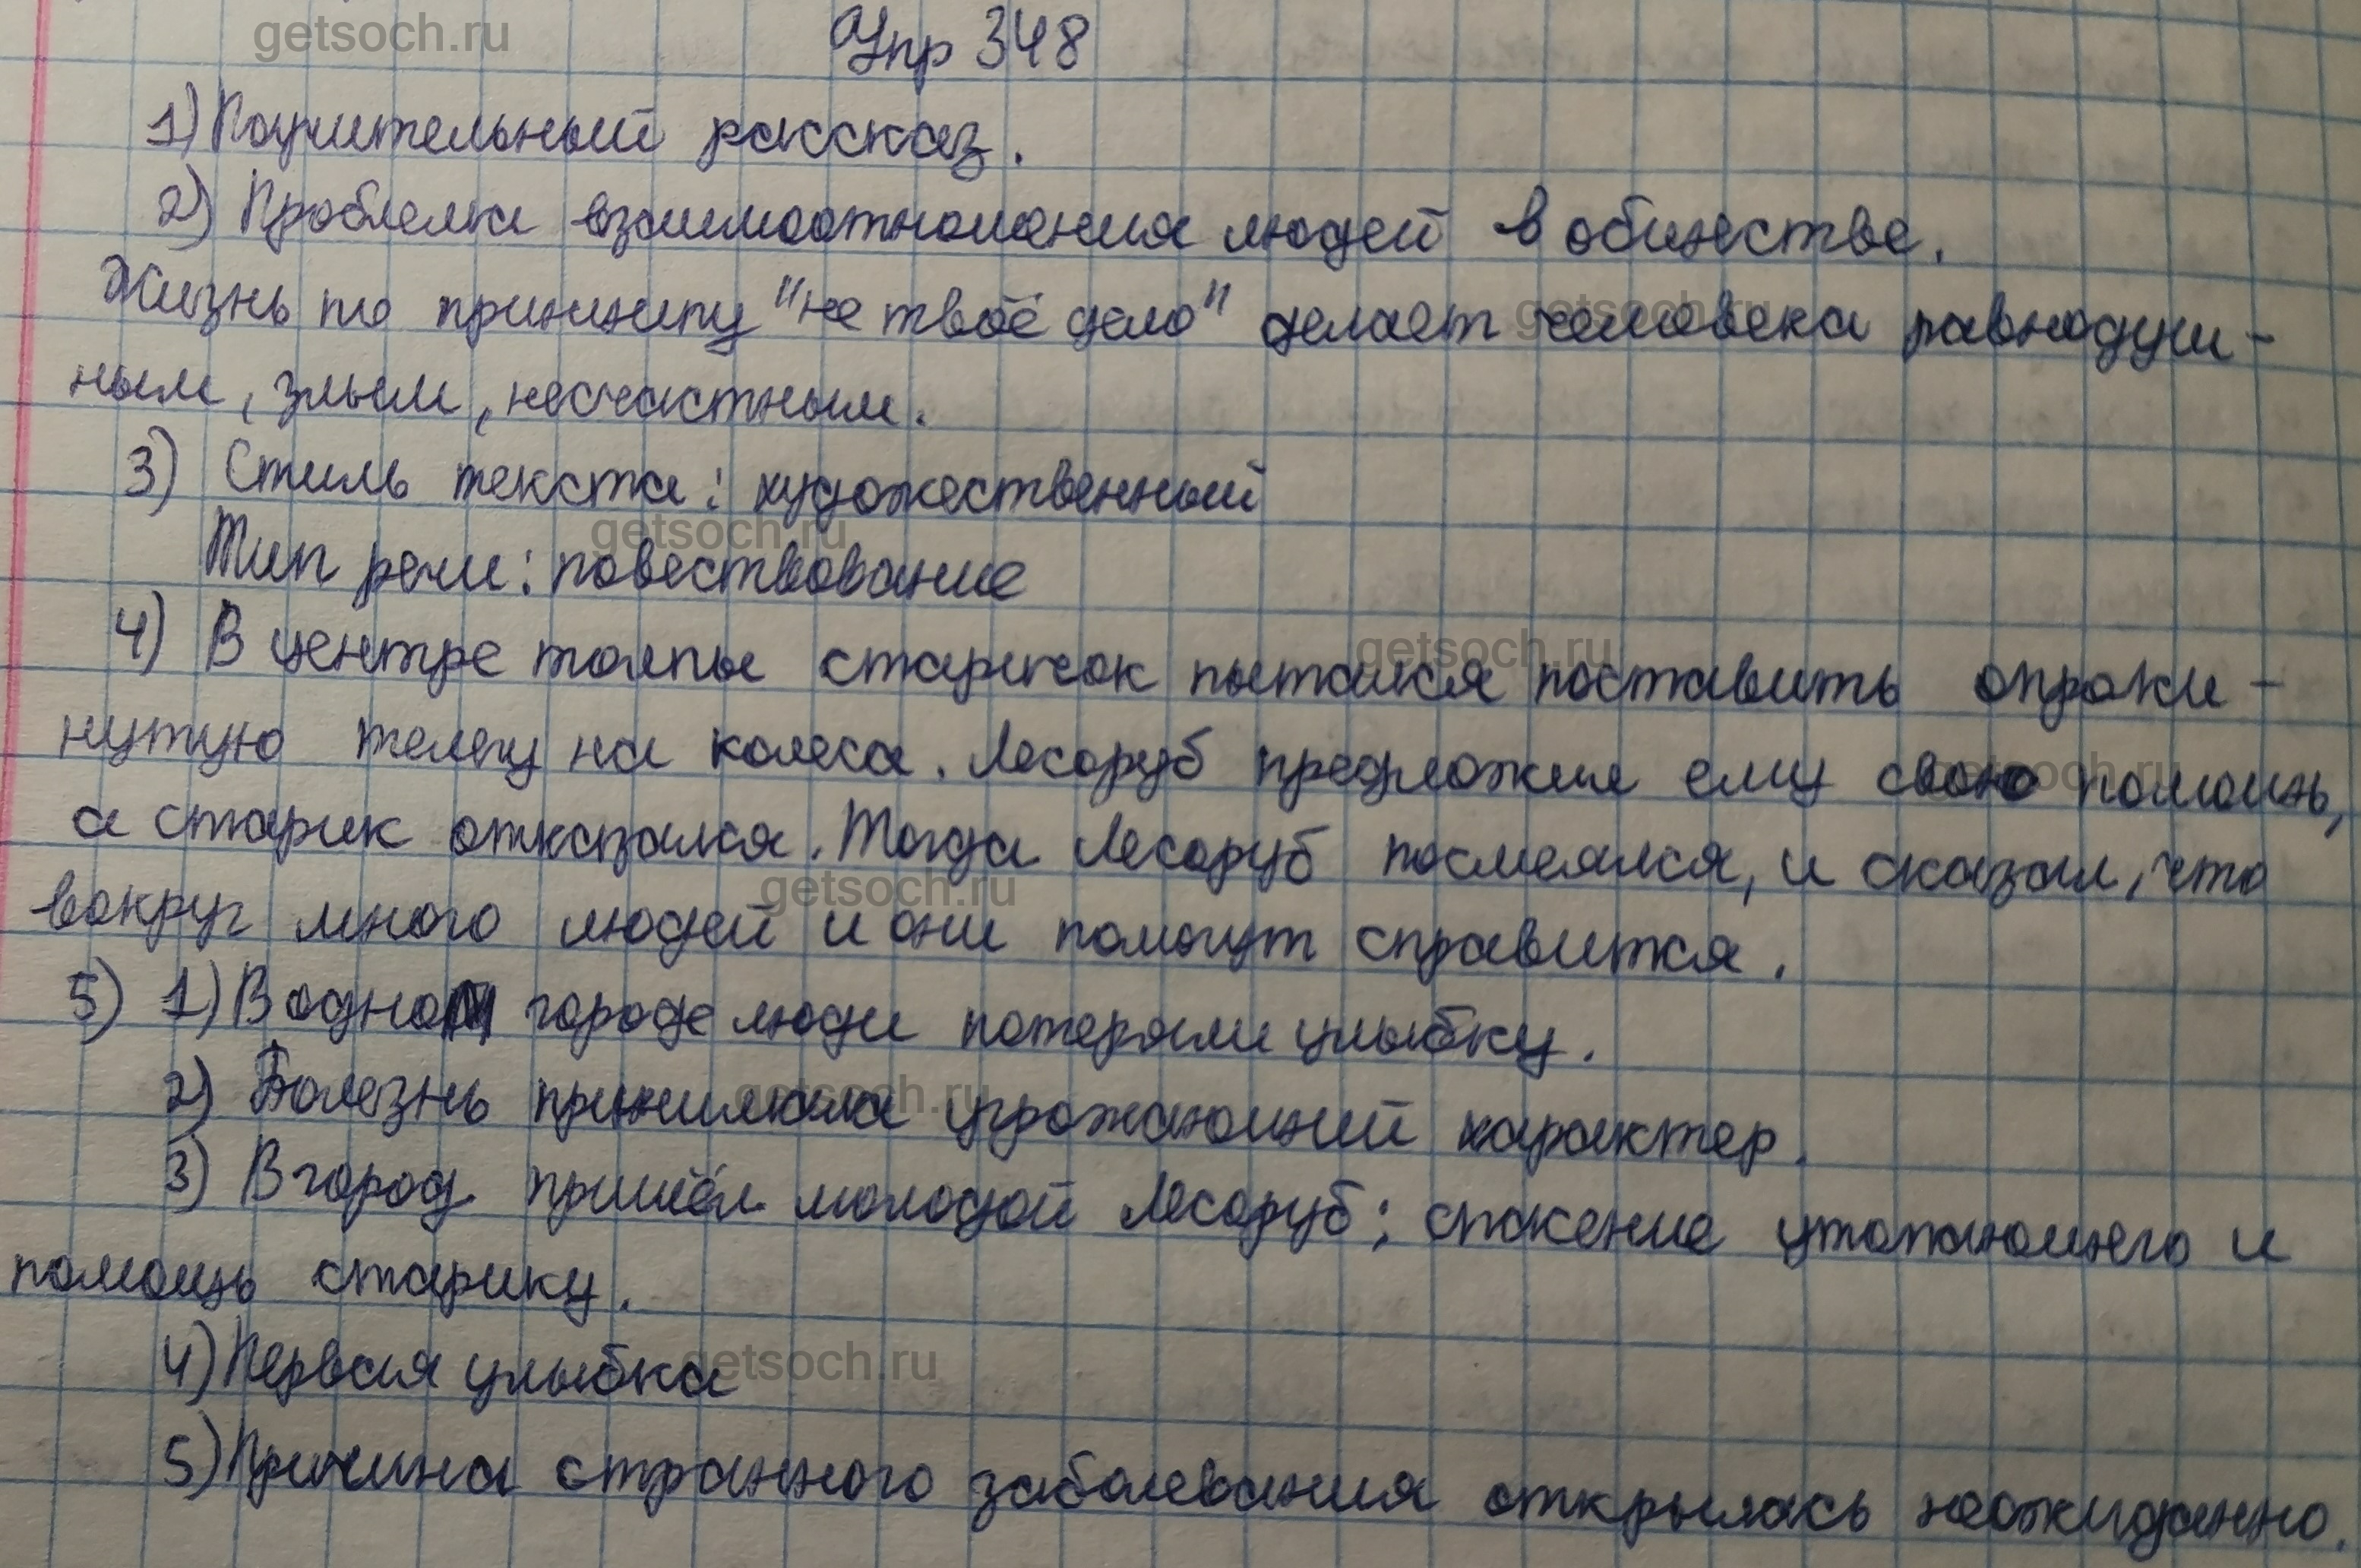 Упр 348
1) Поучительный рассказ.
2) Проблема взаимоотношения людей в обществе.
Жизнь по принципу "не твоё дело" делает человека равнодуш-
ным, злым, несчастным.
3) Стиль текста: художественный
Тип речи: повествование
4) В центре толпы старичок пытался поставить опроки-
нутую телегу на колеса. Лесоруб предложил ему свою помощь,
а старик отказался. Тогда Лесоруб посмеялся, и сказал, что
вокруг много людей и они помогут справится.
5) 1) В одном городе люди потеряли улыбку.
2) Болезнь принимала угрожающий характер.
3) В город пришёл молодой Лесоруб; спасение утопающего и
помощь старику.
4) Первая улыбка
5) Причина странного заболевания открылась неожиданно.
getsoch.ru
getsoch.ru
getsoch.ru
getsoch.ru
getsoch.ru
getsoch.ru
getsoch.ru
getsoch.ru